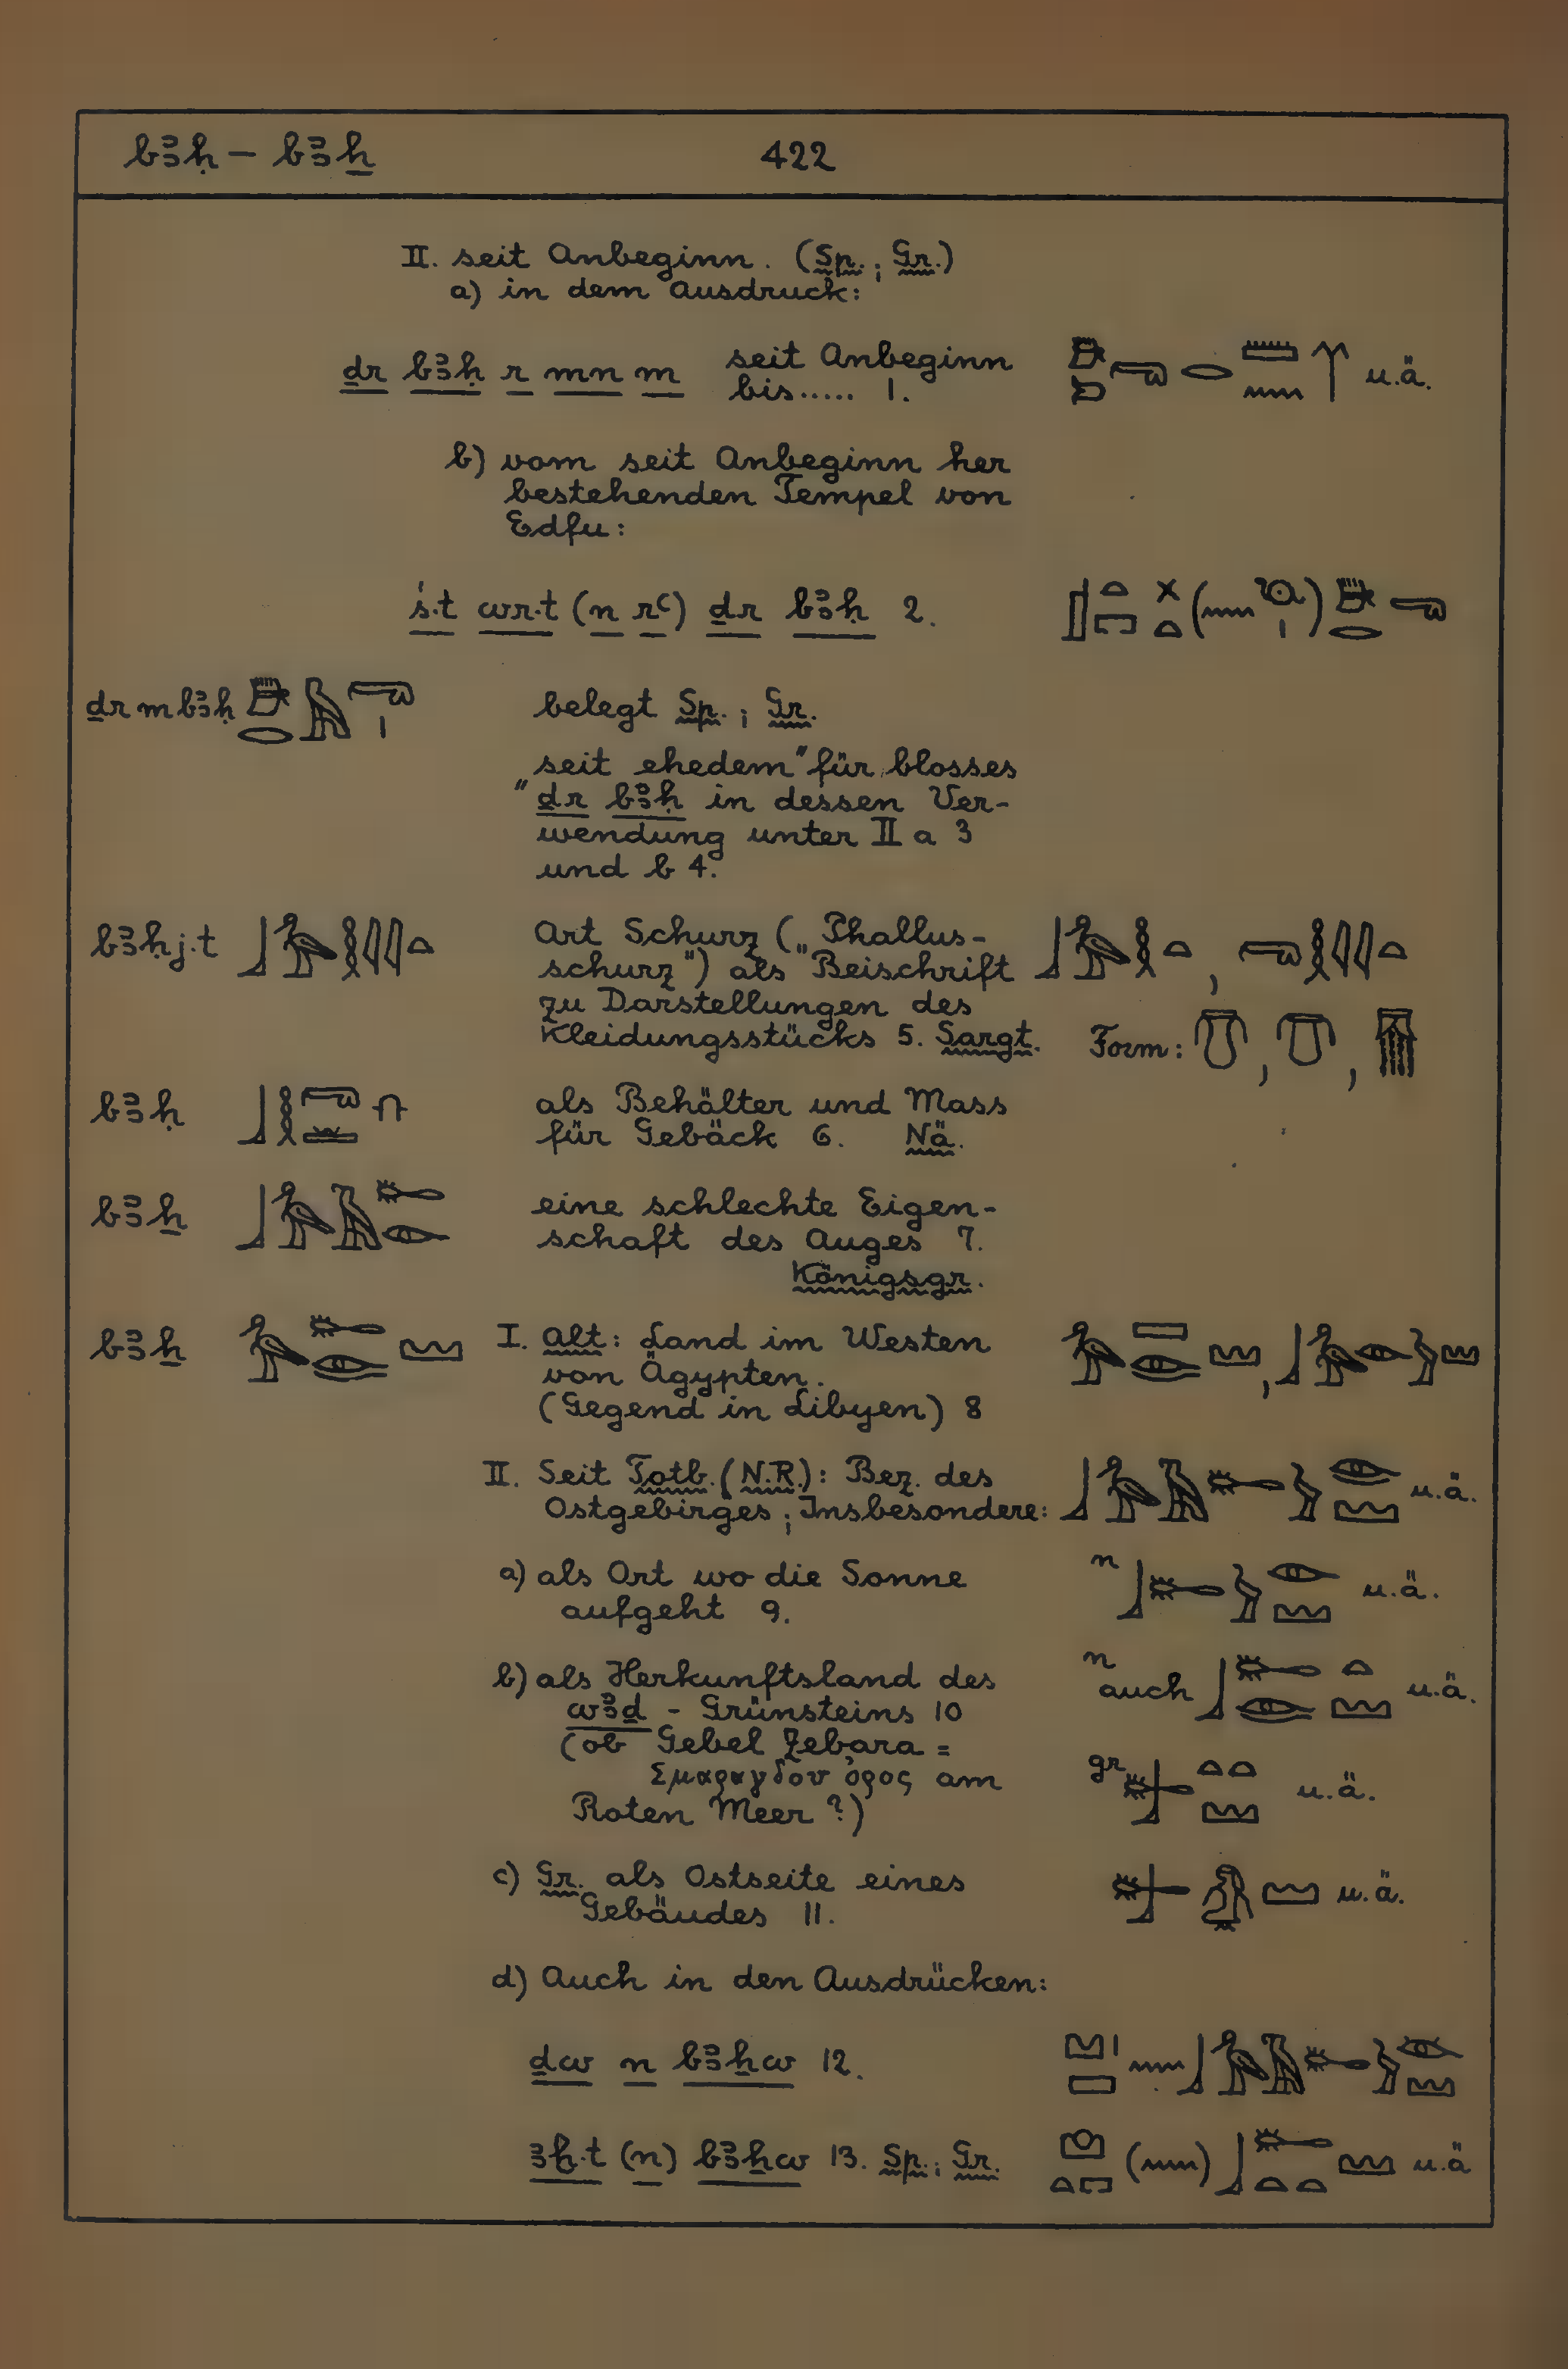 bꜣḥ – bꜣẖ 422
II. seit Anbeginn. (Sp.; Gr.)
a) in dem Ausdruck:
ḏr bꜣḥ r mn m seit Anbeginn
bis..... 1. u.ä.
b) vom seit Anbeginn her
bestehenden Tempel von
Edfu:
ś.t wr.t (n rꜥ) ḏr bꜣḥ 2.
ḏr m bꜣḥ belegt Sp.; Gr.
„seit ehedem" für blosses
ḏr bꜣḥ in dessen Ver-
wendung unter II a 3
und b 4.
bꜣḥj.t Art Schurz („Phallus-
schurz") als Beischrift ,
zu Darstellungen des
Kleidungsstücks 5. Sargt. Form: , ,
bꜣḥ als Behälter und Mass
für Gebäck 6. Nä.
bꜣẖ eine schlechte Eigen-
schaft des Auges 7.
Königsgr.
bꜣẖ I. Alt: Land im Westen ,
von Ägypten.
(Gegend in Libyen) 8
II. Seit Totb. (N.R.): Bez. des u.ä.
Ostgebirges; Insbesondere:
a) als Ort wo die Sonne n u.ä.
aufgeht 9.
b) als Herkunftsland des n auch u.ä.
wꜣḏ - Grünsteins 10
(ob Gebel Zebara =
Σμαραγδου ὄρος am gr u.ä.
Roten Meer?)
c) Gr. als Ostseite eines u.ä.
Gebäudes 11.
d) Auch in den Ausdrücken:
ḏw n bꜣẖw 12.
ꜣḫ.t (n) bꜣẖw 13. Sp.; Gr. ( ) u.ä